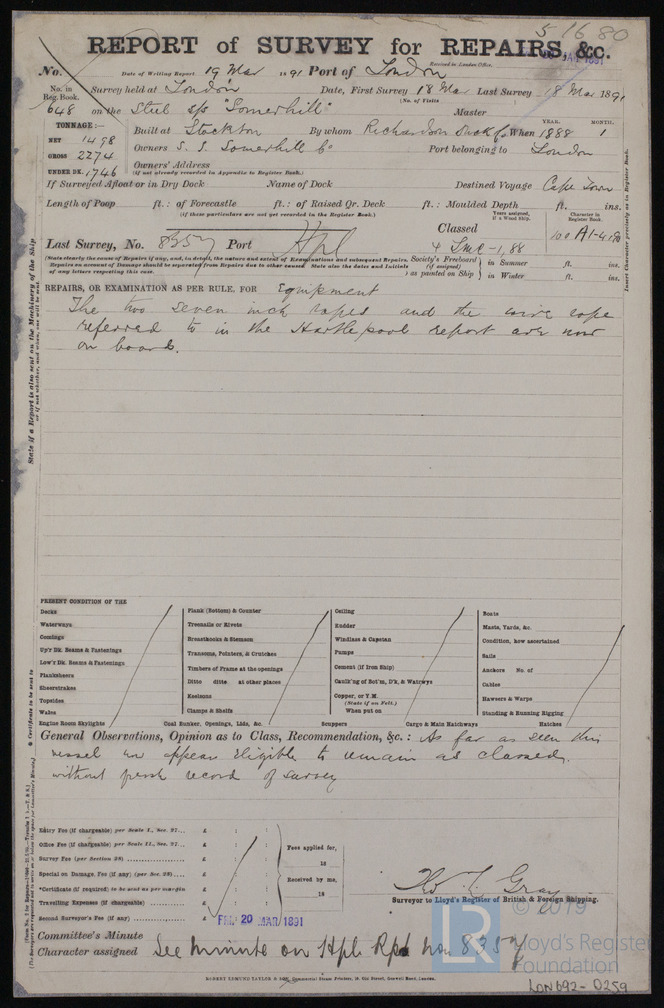 51680
REPORT of SURVEY for REPAIRS, &c.
Received in London Office,
No. Date of Writing Report 19 Mar 1891 Port of London
No. in Reg. Book. Survey held at London Date, First Survey 18 Mar Last Survey 18 Mar 1891
(No. of Visits
648 on the Steel s/s "Somerhill" Master
TONNAGE:- YEAR. MONTH.
NET 1498 Built at Stockton By whom Richardson Duck & Co When 1888 1
GROSS 2274 Owners S. S. Somerhill Co Port belonging to London
UNDER DK. 1746 Owners' Address
(if not already recorded in Appendix to Register Book.)
If Surveyed Afloat or in Dry Dock Name of Dock Destined Voyage Cape Town
Length of Poop ft.: of Forecastle ft.: of Raised Qr. Deck ft.: Moulded Depth ft. ins.
(if these particulars are not yet recorded in the Register Book.)
Years assigned, if a Wood Ship. Character in Register Book.
Classed 100 A1-4.90
Last Survey, No. 8357 Port Hpl 4 LMC-1,88
(State clearly the cause of Repairs if any, and, in detail, the nature and extent of Examinations and subsequent Repairs.
Repairs on account of Damage should be separated from Repairs due to other causes. State also the dates and initials
of any letters respecting this case.
Society's Freeboard (if assigned) as painted on Ship in Summer ft. ins.
in Winter ft. ins.
Insert Character precisely as in Register Book.
REPAIRS, OR EXAMINATION AS PER RULE, FOR Equipment
The two seven inch ropes and the wire rope
referred to in the Hartlepool report are now
on board.
State if a Report is also sent on the Machinery of the Ship
PRESENT CONDITION OF THE
Decks
Waterways
Comings
Up'r Dk. Beams & Fastenings
Low'r Dk. Beams & Fastenings
Planksheers
Sheerstrakes
Topsides
Wales
Engine Room Skylights
Plank (Bottom) & Counter
Treenails or Rivets
Breasthooks & Stemson
Transoms, Pointers, & Crutches
Timbers of Frame at the openings
Ditto ditto at other places
Keelsons
Clamps & Shelfs
Coal Bunker, Openings, Lids, &c.
Ceiling
Rudder
Windlass & Capstan
Pumps
Cement (if Iron Ship)
Caulk'ng of Bot'm, D'k, & Watrwys
Copper, or Y.M.
(State if on Felt.)
When put on
Scuppers
Cargo & Main Hatchways
Boats
Masts, Yards, &c.
Condition, how ascertained
Sails
Anchors No. of
Cables
Hawsers & Warps
Standing & Running Rigging
Hatches
General Observations, Opinion as to Class, Recommendation, &c.: As far as seen this
vessel appears eligible to remain as classed.
without fresh record of survey
Entry Fee (if chargeable) per Scale I., Sec. 27... £ : :
Office Fee (if chargeable) per Scale II., Sec. 27... £ : :
Survey Fee (per Section 28) £ : :
Special on Damage, Fee (if any) (per Sec. 28)... £ : :
*Certificate (if required) to be sent as per margin £ : :
Travelling Expenses (if chargeable) £ : :
Second Surveyor's Fee (if any) £ : :
Fees applied for,
18
Received by me,
19
Surveyor to Lloyd's Register of British & Foreign Shipping.
FRI. 20 MAR 1891
Committee's Minute
Character assigned See minute on Hpl Rpt No. 8357
ROBERT EDMUND TAYLOR & SON, Commercial Steam Printers, 19, Old Street, Goswell Road, London.
© 2019
LR
Lloyd's Register
Foundation
LON692-0259